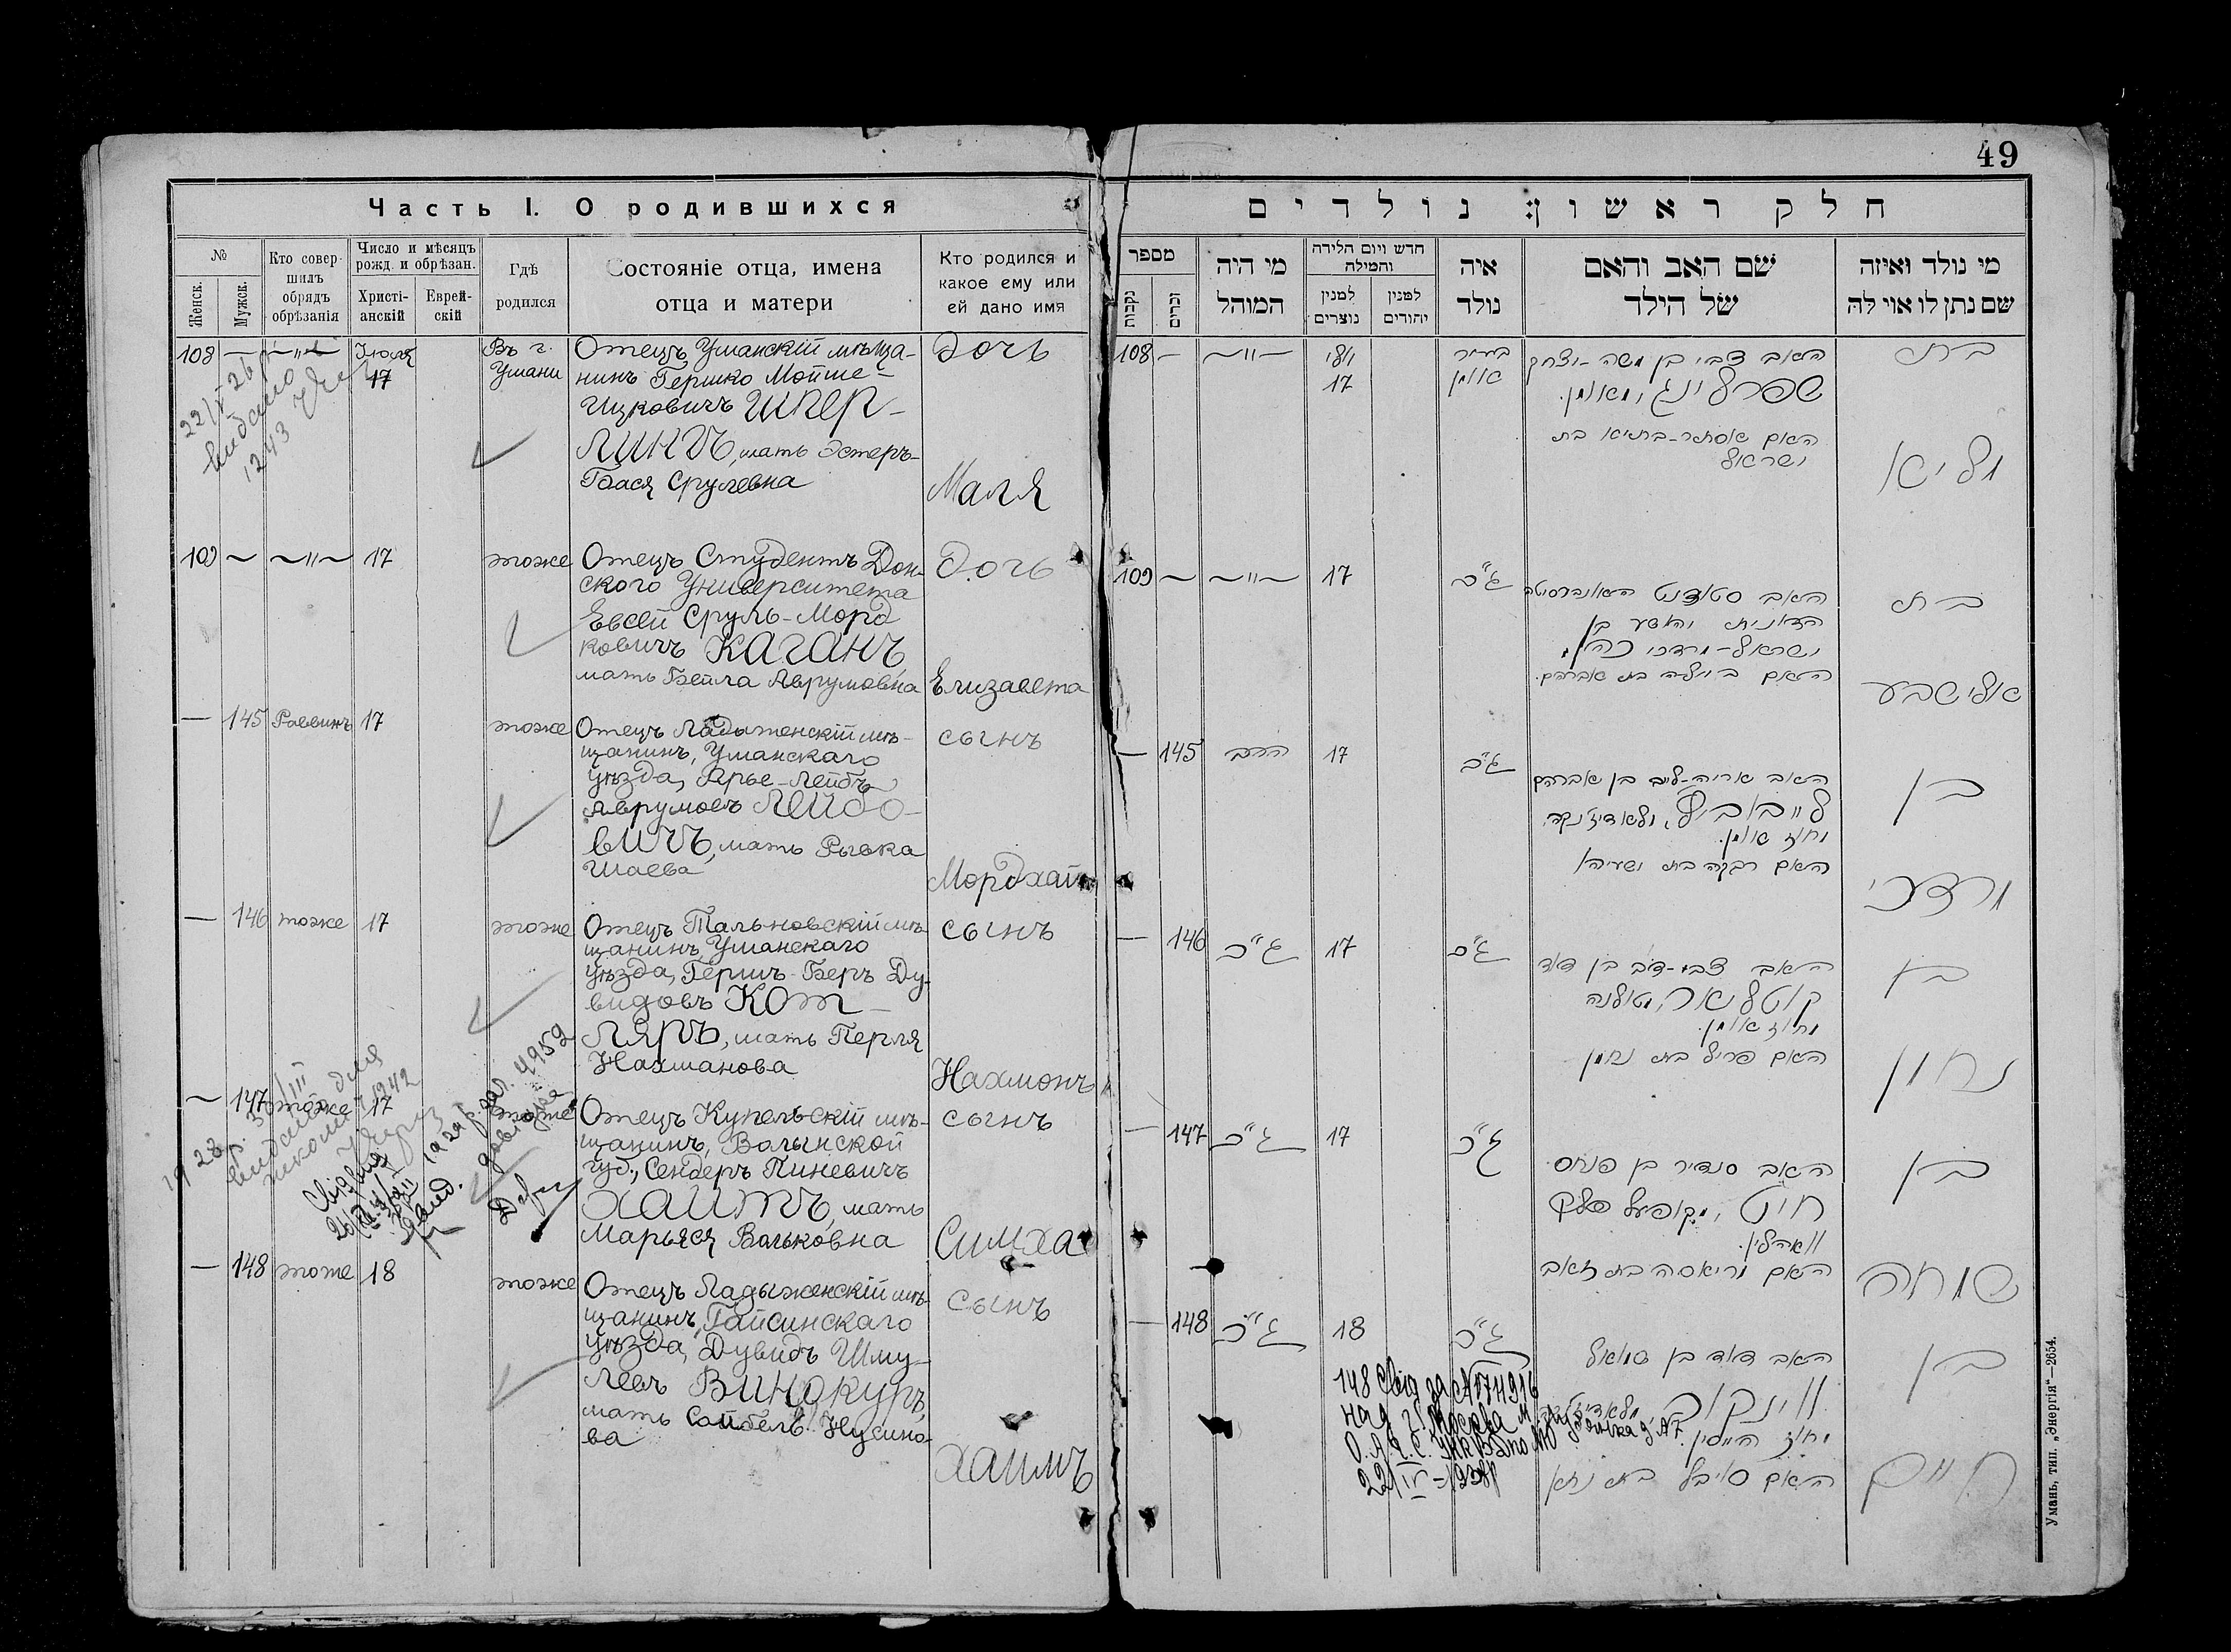 49
Часть I. О родившихся
№
Женск.
Мужск.
Кто совер-
шилъ
обрядъ
обрѣзанія
Число и мѣсяцъ
рожд. и обрѣзан.
Христі-
анскій
Еврей-
скій
Гдѣ
родился
Состояніе отца, имена
отца и матери
Кто родился и
какое ему или
ей дано имя
108 — —„— Іюля
17
Въ г.
Умани
Отецъ Уманскій мѣща-
нинъ Гершко Мойше-
Ицковичъ ШПЕР-
ЛИНГЪ, мать Эстеръ-
Бася Срулевна
Дочь
Маля
109 — —„— 17 тоже
Отецъ Студентъ Дон-
ского Университета
Евсей Сруль-Морд
ковичъ КАГАНЪ
мать Бейла Аврумовна
Дочь
Елизавета
— 145 Раввинъ 17 тоже
Отецъ Ладыженскій мѣ-
щанинъ, Уманскаго
уѣзда, Арье-Лейбъ
Аврумовъ ЛЕЙБО-
ВИЧЪ, мать Рывка
Шаева
сынъ
Мордхай
— 146 тоже 17 тоже
Отецъ Тальновскій мѣ-
щанинъ Уманскаго
уѣзда, Гершъ-Беръ Ду-
видовъ КОТ-
ЛЯРЪ, мать Перля
Нахманова
сынъ
Нахмонъ
— 147 тоже 17 тоже
Отецъ Купельскій мѣ-
щанинъ, Волынской
губ., Сендеръ Пиневичъ
ХАИТЪ, мать
Марьяся Вольковна
сынъ
Симха
— 148 тоже 18 тоже
Отецъ Ладыженскій мѣ-
щанинъ, Гайсинскаго
уѣзда, Дувидъ Шму-
левъ ВИНОКУРЪ,
мать Сойбель Нусино-
ва
сынъ
Хаимъ
22/V 26 р
видано
1243
חלק ראשון: נולדים
מספר
נקבות
זכרים
מי היה
המוהל
חדש ויום הלידה
והמילה
למנין
נוצרים
למנין
יהודים
איה
נולד
שם האב והאם
של הילד
מי נולד ואיזה
שם נתן לו או לה
108 — —„— יולי
17
בעיר
אומן
האב צבי בן משה-יצחק
שפרלינג, מאומן.
האם אסתר-בתיא בת
ישראל
בת
מליא
109 — —„— 17 ג״כ
האב סטודנט האוניברסיטה
הדונית יהושע בן
ישראל-מרדכי כהן,
האם ביילה בת אברהם.
בת
אלישבע
— 145 הרב 17 ג״כ
האב אריה-ליב בן אברהם
לייבוביץ, מלאדיזנקה,
מחוז אומן.
האם רבקה בת ישעיהו
בן
מרדכי
— 146 ג״כ 17 ג״כ
האב צבי-דב בן דוד
קוטליאר, מטולנה
מחוז אומן.
האם פריל בת נחמן
בן
נחמן
— 147 ג״כ 17 ג״כ
האב סנדיר בן פנחס
חיט, מקופיעל פלך
וואהלין.
האם מריאסה בת זאב
בן
שמחה
— 148 ג״כ 18 ג״כ
האב דוד בן שמואל
ווינקור
האם סויבל בת נתא
בן
חיים
22/IV-1938р
Умань, тип. „Энергія“—2654.